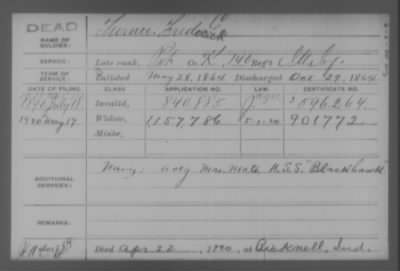 DEAD
NAME OF SOLDIER: Turner, Frederick
SERVICE: Late rank, Pvt Co. K, 140 Reg't Ills Inf.
TERM OF SERVICE: Enlisted May 28, 1864 Discharged Oct 29, 1864
DATE OF FILING. CLASS APPLICATION NO. LAW. CERTIFICATE NO.
1890 July 18 Invalid, 840,885 596,264
1920 May 19 Widow, 1,157,786 5-1-20 901772
Minor,
ADDITIONAL SERVICES: Navy: actg Mas. Mate U.S.S. "Blackhawk"
REMARKS:
Died Apr. 22, 1920, at Bicknell, Ind.